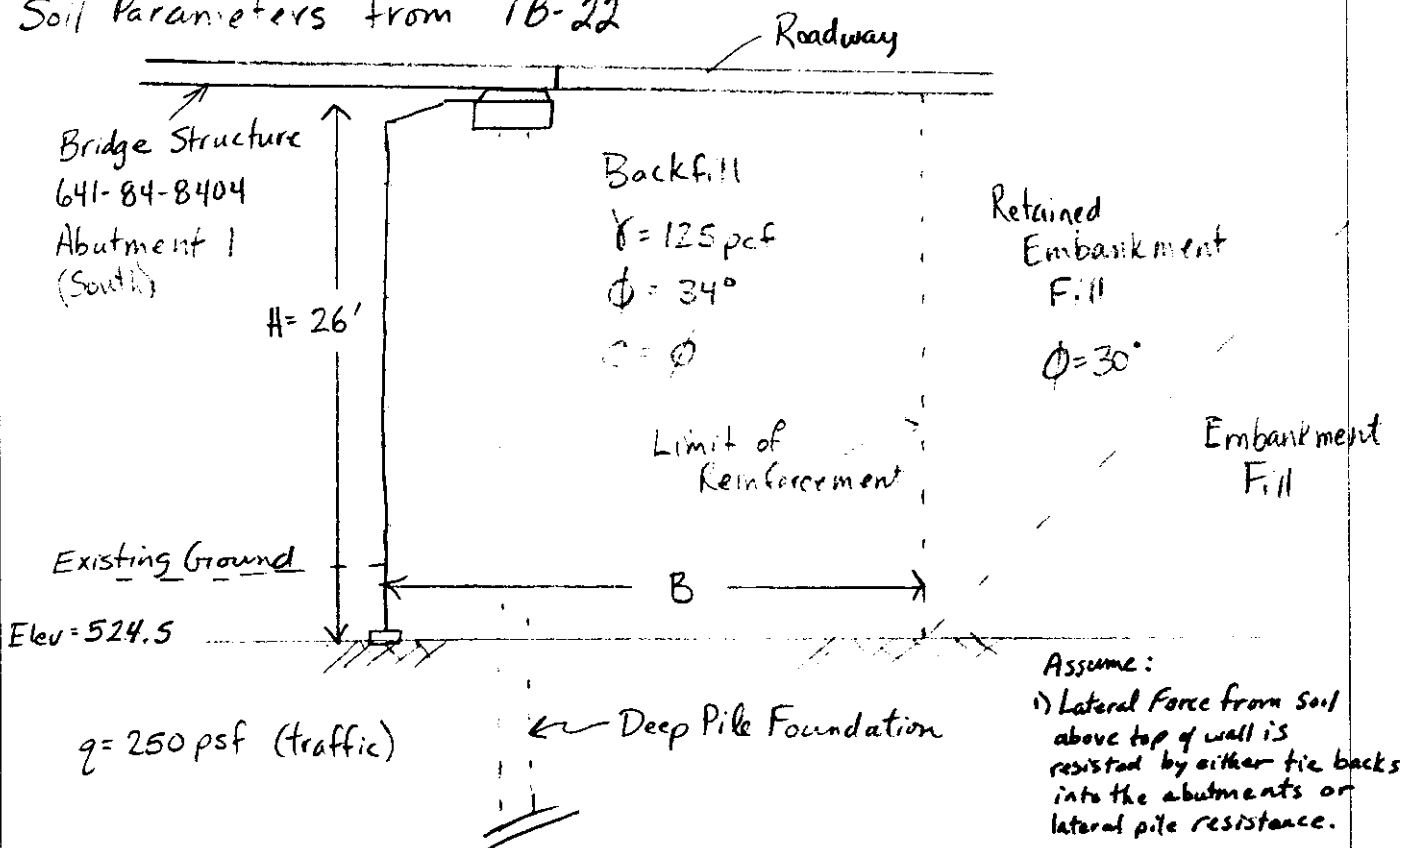 Soil Parameters from TB-22
Roadway
Bridge Structure
641-84-8404
Abutment 1
(South)
H= 26'
Backfill
γ = 125 pcf
ϕ = 34°
c = ϕ
Limit of
Reinforcement
Retained
Embankment
Fill
ϕ=30°
Embankment
Fill
Existing Ground
B
Elev=524.5
q= 250 psf (traffic)
Deep Pile Foundation
Assume:
1) Lateral Force from Soil
above top of wall is
resisted by either tie backs
into the abutments or
lateral pile resistance.